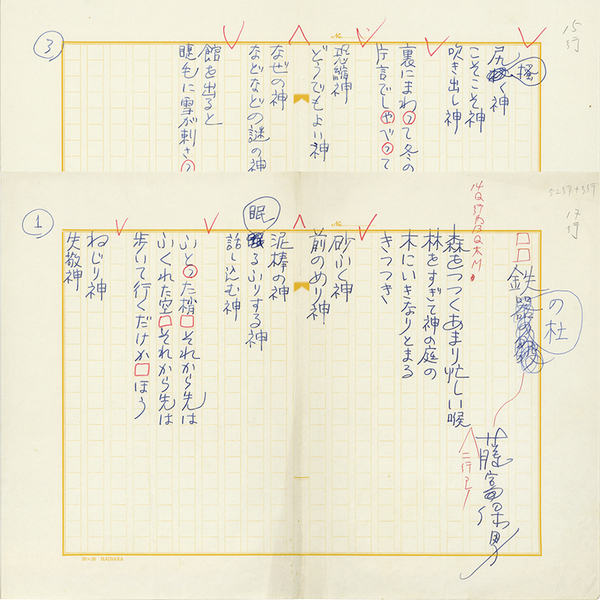 ③
15行
尻掻く神
こそこそ神
吹き出し神
裏にまわって冬の
片言でしゃべって
恐縮神
どうでもよい神
なぜの神
などなどの謎の神
館を出ると
睫毛に雪が刺さっ
①
17行
鉄の杜
藤富保男
二行アキ
森をつつくあまり忙しい喉
林をすぎて神の庭の
木にいきなりとまる
きつつき
砂ふく神
前のめり神
泥棒の神
眠るふりする神
話し込む神
ふとった梢 それから先は
ふくれた空 それから先は
歩いて行くだけか ほう
ねじり神
失敬神
20×20